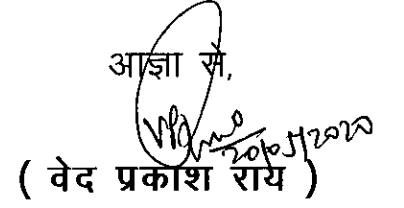 आज्ञा से,
20/05/2020
( वेद प्रकाश राय )